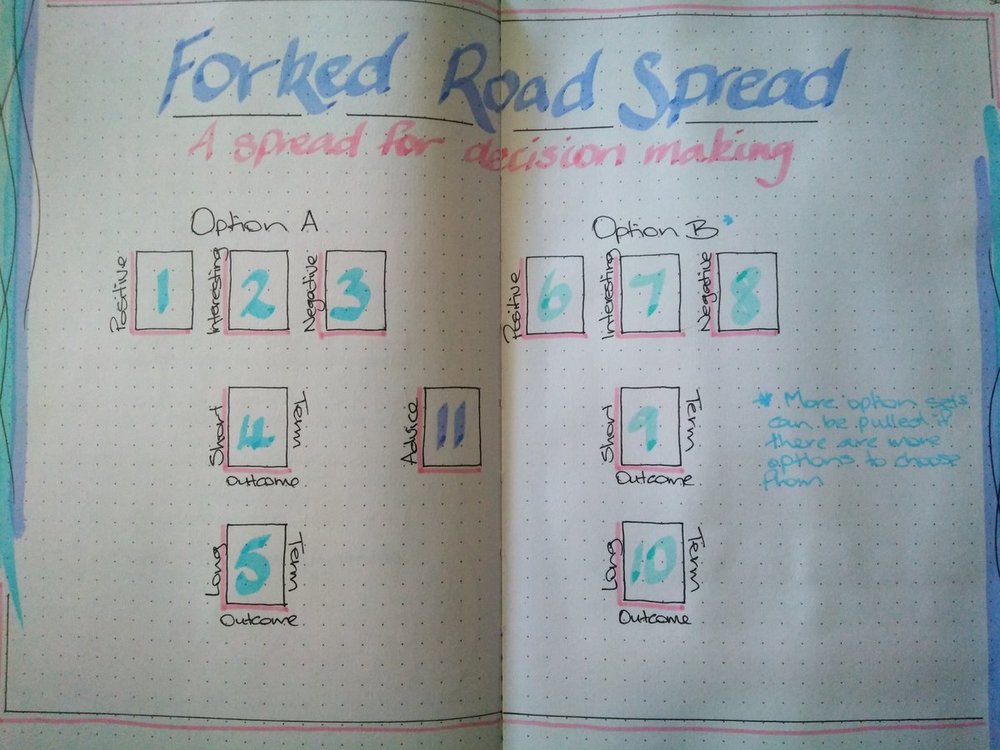 Forked Road Spread
A spread for decision making
Option A
Positive
1
Interesting
2
Negative
3
Short
4
Term
Outcome
Long
5
Term
Outcome
Advice
11
Option B*
Positive
6
Interesting
7
Negative
8
Short
9
Term
Outcome
Long
10
Term
Outcome
* More option sets
can be pulled if
there are more
options to choose
from